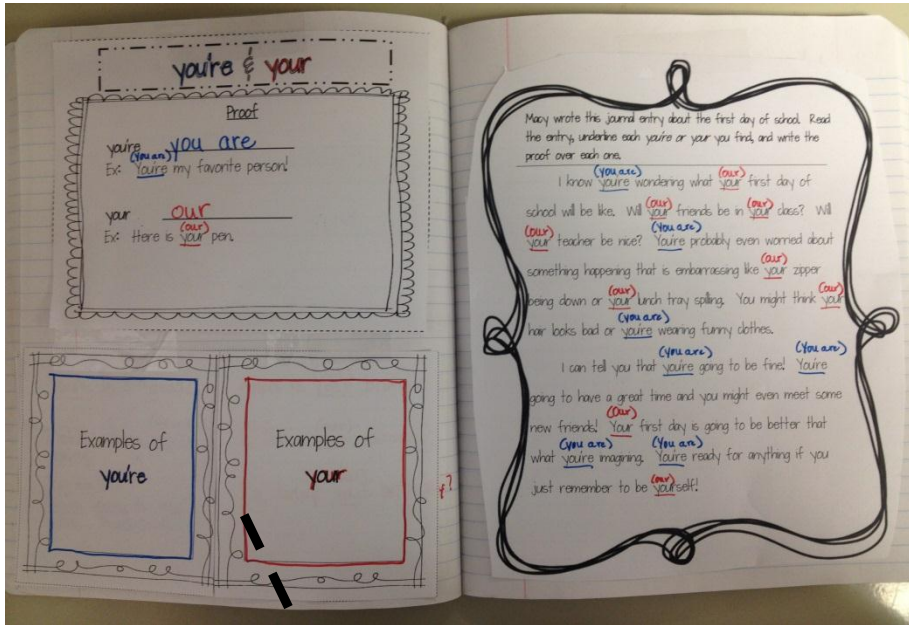 you're & your
Proof
you're you are
(you are)
Ex: You're my favorite person!
your our
(our)
Ex: Here is your pen.
Examples of
you're
Examples of
your
Macy wrote this journal entry about the first day of school. Read
the entry, underline each you're or your you find, and write the
proof over each one.
(you are) (our)
I know you're wondering what your first day of
(our) (our)
school will be like. Will your friends be in your class? Will
(our) (You are)
your teacher be nice? You're probably even worried about
(our)
something happening that is embarrassing like your zipper
(our) (our)
being down or your lunch tray spilling. You might think your
(you are)
hair looks bad or you're wearing funny clothes.
(you are) (You are)
I can tell you that you're going to be fine! You're
going to have a great time and you might even meet some
(Our)
new friends! Your first day is going to be better that
(you are) (You are)
what you're imagining. You're ready for anything if you
(our)
just remember to be yourself!